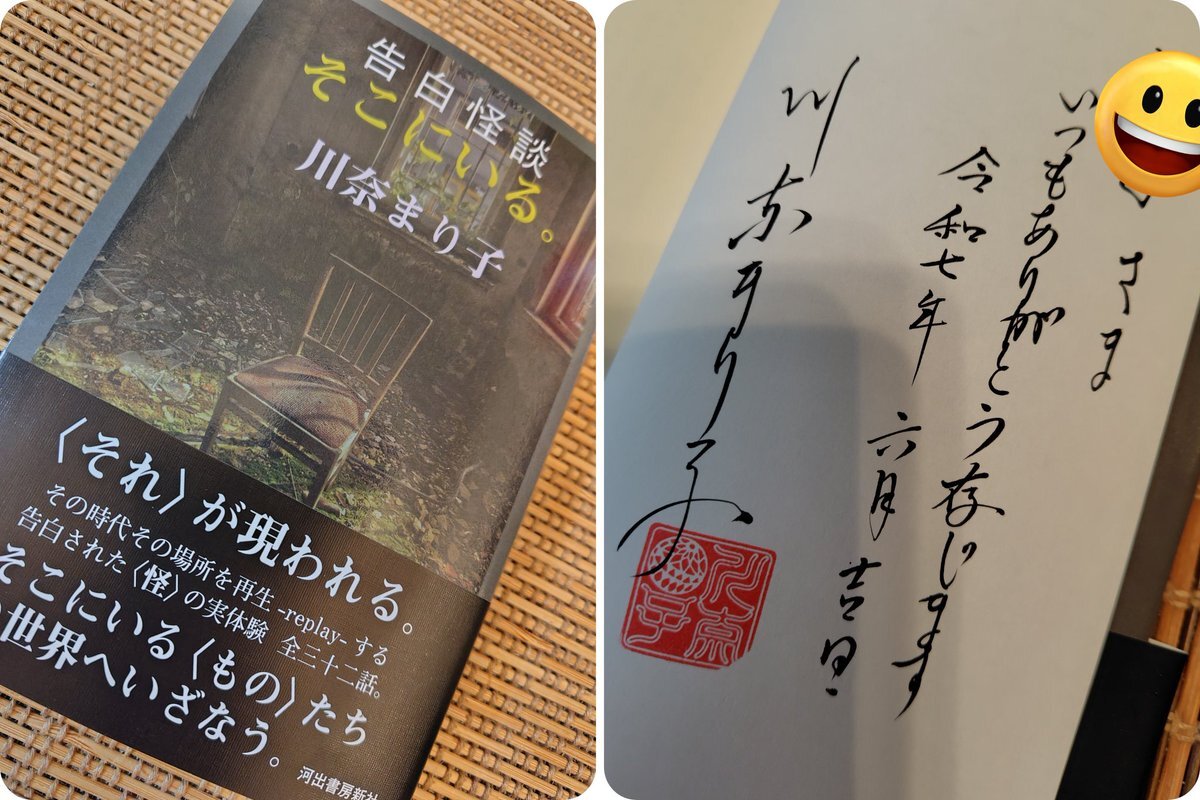 告白怪談
そこにいる。
川奈まり子
〈それ〉が現われる。
その時代その場所を再生 -replay- する
告白された〈怪〉の実体験 全三十二話。
そこにいる〈もの〉たち
世界へいざなう。
河出書房新社
さま
いつもありがとう存じます
令和七年 六月 吉日
川奈まり子